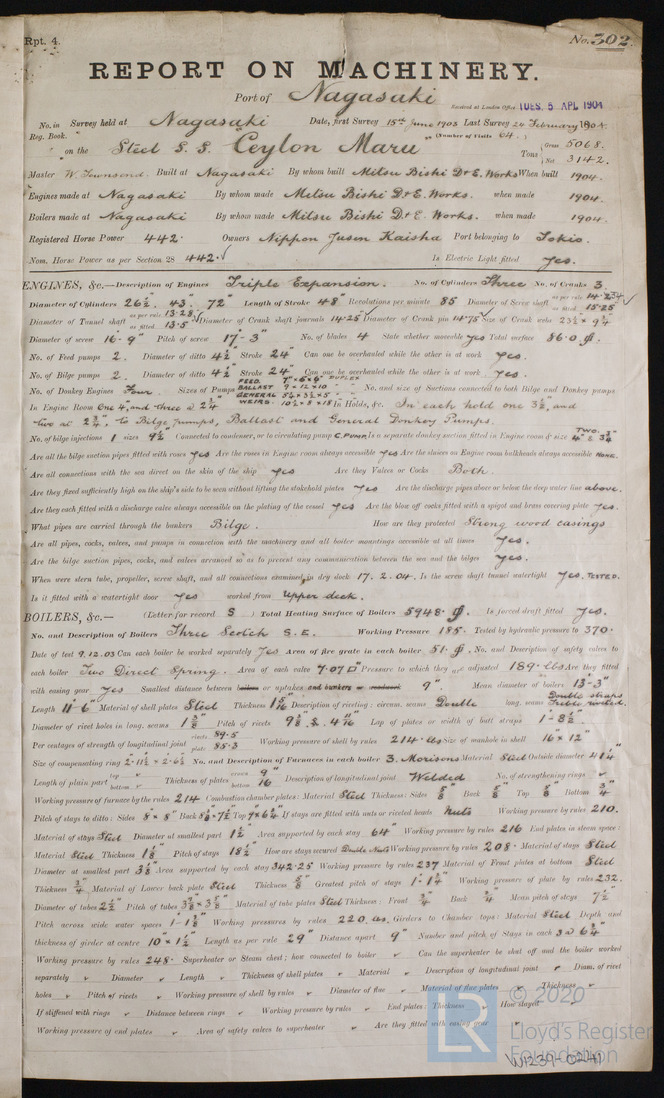 Rpt. 4.
No. 302.
REPORT ON MACHINERY.
Port of Nagasaki
Received at London Office TUES. 5 APL 1904
No. in Survey held at Nagasaki Date, first Survey 15th June 1903 Last Survey 24 February 1904.
Reg. Book. (Number of Visits 64.)
on the Steel S. S. "Ceylon Maru" Tons { Gross 5068. Net 3142.
Master W. Townsend. Built at Nagasaki By whom built Mitsu Bishi D & E. Works When built 1904.
Engines made at Nagasaki By whom made Mitsu Bishi D & E. Works. when made 1904.
Boilers made at Nagasaki By whom made Mitsu Bishi D & E. Works. when made 1904.
Registered Horse Power 442. Owners Nippon Yusen Kaisha Port belonging to Tokio.
Nom. Horse Power as per Section 28 442. Is Electric Light fitted Yes.
ENGINES, &c.—Description of Engines Triple Expansion. No. of Cylinders Three No. of Cranks 3.
Diameter of Cylinders 26½". 43". 72" Length of Stroke 48" Revolutions per minute 85 Diameter of Screw shaft as per rule as fitted 15.25
Diameter of Tunnel shaft as per rule 13.28 as fitted 13.5 Diameter of Crank shaft journals 14.25 Diameter of Crank pin 14.75 Size of Crank webs 23½ × 9¼
Diameter of screw 16-9" Pitch of screw 17-3" No. of blades 4 State whether moveable yes Total surface 86.0
No. of Feed pumps 2. Diameter of ditto 4½ Stroke 24" Can one be overhauled while the other is at work Yes.
No. of Bilge pumps 2. Diameter of ditto 4½ Stroke 24" Can one be overhauled while the other is at work Yes.
No. of Donkey Engines Four. Sizes of Pumps FEED 7" × 6 × 6" DUPLEX BALLAST 9 × 12 × 10 GENERAL 5¼ × 3½ × 5 WEIRS. 10½ × 8 × 18 No. and size of Suctions connected to both Bilge and Donkey pumps
In Engine Room One 4, and three @ 2¾" In Holds, &c. In each hold one 3½, and
two at 2¾". to Bilge pumps, Ballast and General Donkey Pumps.
No. of bilge injections 1 sizes 9½" Connected to condenser, or to circulating pump C. Pump Is a separate donkey suction fitted in Engine room & size TWO. 4" & 3¾
Are all the bilge suction pipes fitted with roses yes Are the roses in Engine room always accessible yes Are the sluices on Engine room bulkheads always accessible NONE.
Are all connections with the sea direct on the skin of the ship yes Are they Valves or Cocks Both.
Are they fixed sufficiently high on the ship's side to be seen without lifting the stokehold plates yes Are the discharge pipes above or below the deep water line above.
Are they each fitted with a discharge valve always accessible on the plating of the vessel yes Are the blow off cocks fitted with a spigot and brass covering plate yes.
What pipes are carried through the bunkers Bilge. How are they protected Strong wood casings
Are all pipes, cocks, valves, and pumps in connection with the machinery and all boiler mountings accessible at all times Yes.
Are the bilge suction pipes, cocks, and valves arranged so as to prevent any communication between the sea and the bilges Yes.
When were stern tube, propeller, screw shaft, and all connections examined in dry dock 17. 2. 04. Is the screw shaft tunnel watertight Yes. TESTED.
Is it fitted with a watertight door yes worked from Upper deck.
BOILERS, &c.— (Letter for record S) Total Heating Surface of Boilers 5948. Is forced draft fitted Yes.
No. and Description of Boilers Three Scotch S. E. Working Pressure 185. Tested by hydraulic pressure to 370.
Date of test 9.12.03 Can each boiler be worked separately yes Area of fire grate in each boiler 51. No. and Description of safety valves to
each boiler Two Direct Spring. Area of each valve 7.07 Pressure to which they are adjusted 189. Lbs Are they fitted
with easing gear Yes Smallest distance between boilers or uptakes and bunkers or woodwork 9" Mean diameter of boilers 13-3"
Length 11-6" Material of shell plates Steel Thickness 1 5/16 Description of riveting: circum. seams Double long. seams Double straps Treble riveted.
Diameter of rivet holes in long. seams 1 3/8 Pitch of rivets 9⅜ & 4 11/16 Lap of plates or width of butt straps 1-8½"
Per centages of strength of longitudinal joint rivets 89.5 plate 85.3 Working pressure of shell by rules 214. Lbs Size of manhole in shell 16" × 12"
Size of compensating ring 2-11½ × 2-6½ No. and Description of Furnaces in each boiler 3. Morisons Material Steel Outside diameter 41¼"
Length of plain part top bottom Thickness of plates crown bottom 9/16 Description of longitudinal joint Welded No. of strengthening rings
Working pressure of furnace by the rules 214 Combustion chamber plates: Material Steel Thickness: Sides 5/8 Back 5/8 Top 5/8 Bottom 3/4
Pitch of stays to ditto: Sides 8 × 8" Back 8⅛ × 7½ Top 9 × 6¾ If stays are fitted with nuts or riveted heads Nuts Working pressure by rules 210.
Material of stays Steel Diameter at smallest part 1½ Area supported by each stay 64" Working pressure by rules 216 End plates in steam space:
Material Steel Thickness 1⅛ Pitch of stays 18½ How are stays secured Double Nuts Working pressure by rules 208. Material of stays Steel
Diameter at smallest part 3⅛ Area supported by each stay 342.25 Working pressure by rules 237 Material of Front plates at bottom Steel
Thickness 3/4 Material of Lower back plate Steel Thickness 5/8 Greatest pitch of stays 1-1¼" Working pressure of plate by rules 232.
Diameter of tubes 2½" Pitch of tubes Material of tube plates Steel Thickness: Front 3/4 Back 3/4 Mean pitch of stays 7½"
Pitch across wide water spaces 1-1⅜" Working pressures by rules 220 Lbs. Girders to Chamber tops: Material Steel Depth and
thickness of girder at centre 10 × 1½" Length as per rule 29" Distance apart 9" Number and pitch of Stays in each 3 @ 6¾"
Working pressure by rules 248. Superheater or Steam chest; how connected to boiler Can the superheater be shut off and the boiler worked
separately Diameter Length Thickness of shell plates Material Description of longitudinal joint Diam. of rivet
holes Pitch of rivets Working pressure of shell by rules Diameter of flue Material of flue plates Thickness
If stiffened with rings Distance between rings Working pressure by rules End plates: Thickness How stayed
Working pressure of end plates Area of safety valves to superheater Are they fitted with easing gear
© 2020
LR
Lloyd's Register
Foundation
W1239-0241